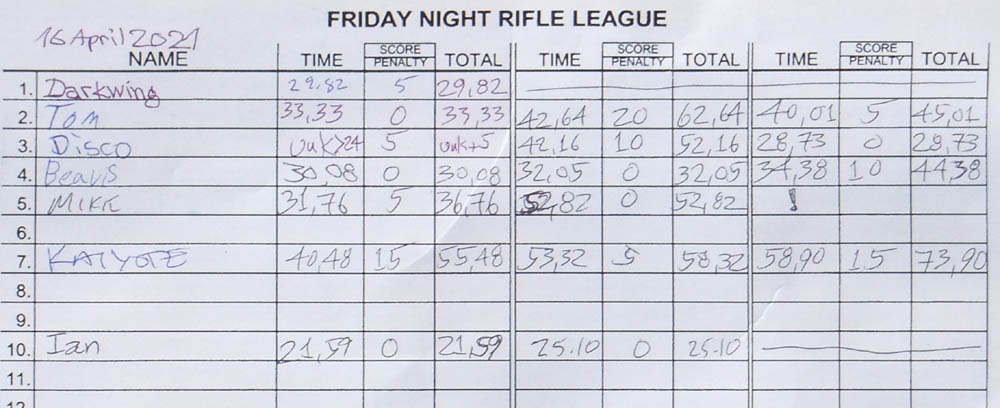 FRIDAY NIGHT RIFLE LEAGUE
16 April 2021
NAME TIME SCORE PENALTY TOTAL TIME SCORE PENALTY TOTAL TIME SCORE PENALTY TOTAL
1. Darkwing 29,82 5 29,82
2. Tom 33,33 0 33,33 42,64 20 62,64 40,01 5 45,01
3. Disco unk>24 5 unk+5 42,16 10 52,16 28,73 0 28,73
4. Beavis 30,08 0 30,08 32,05 0 32,05 34,38 10 44,38
5. MIKE 31,76 5 36,76 52,82 0 52,82 !
6.
7. KAIYOTE 40,48 15 55,48 53,32 5 58,32 58,90 15 73,90
8.
9.
10. Ian 21,59 0 21,59 25.10 0 25.10
11.
12.